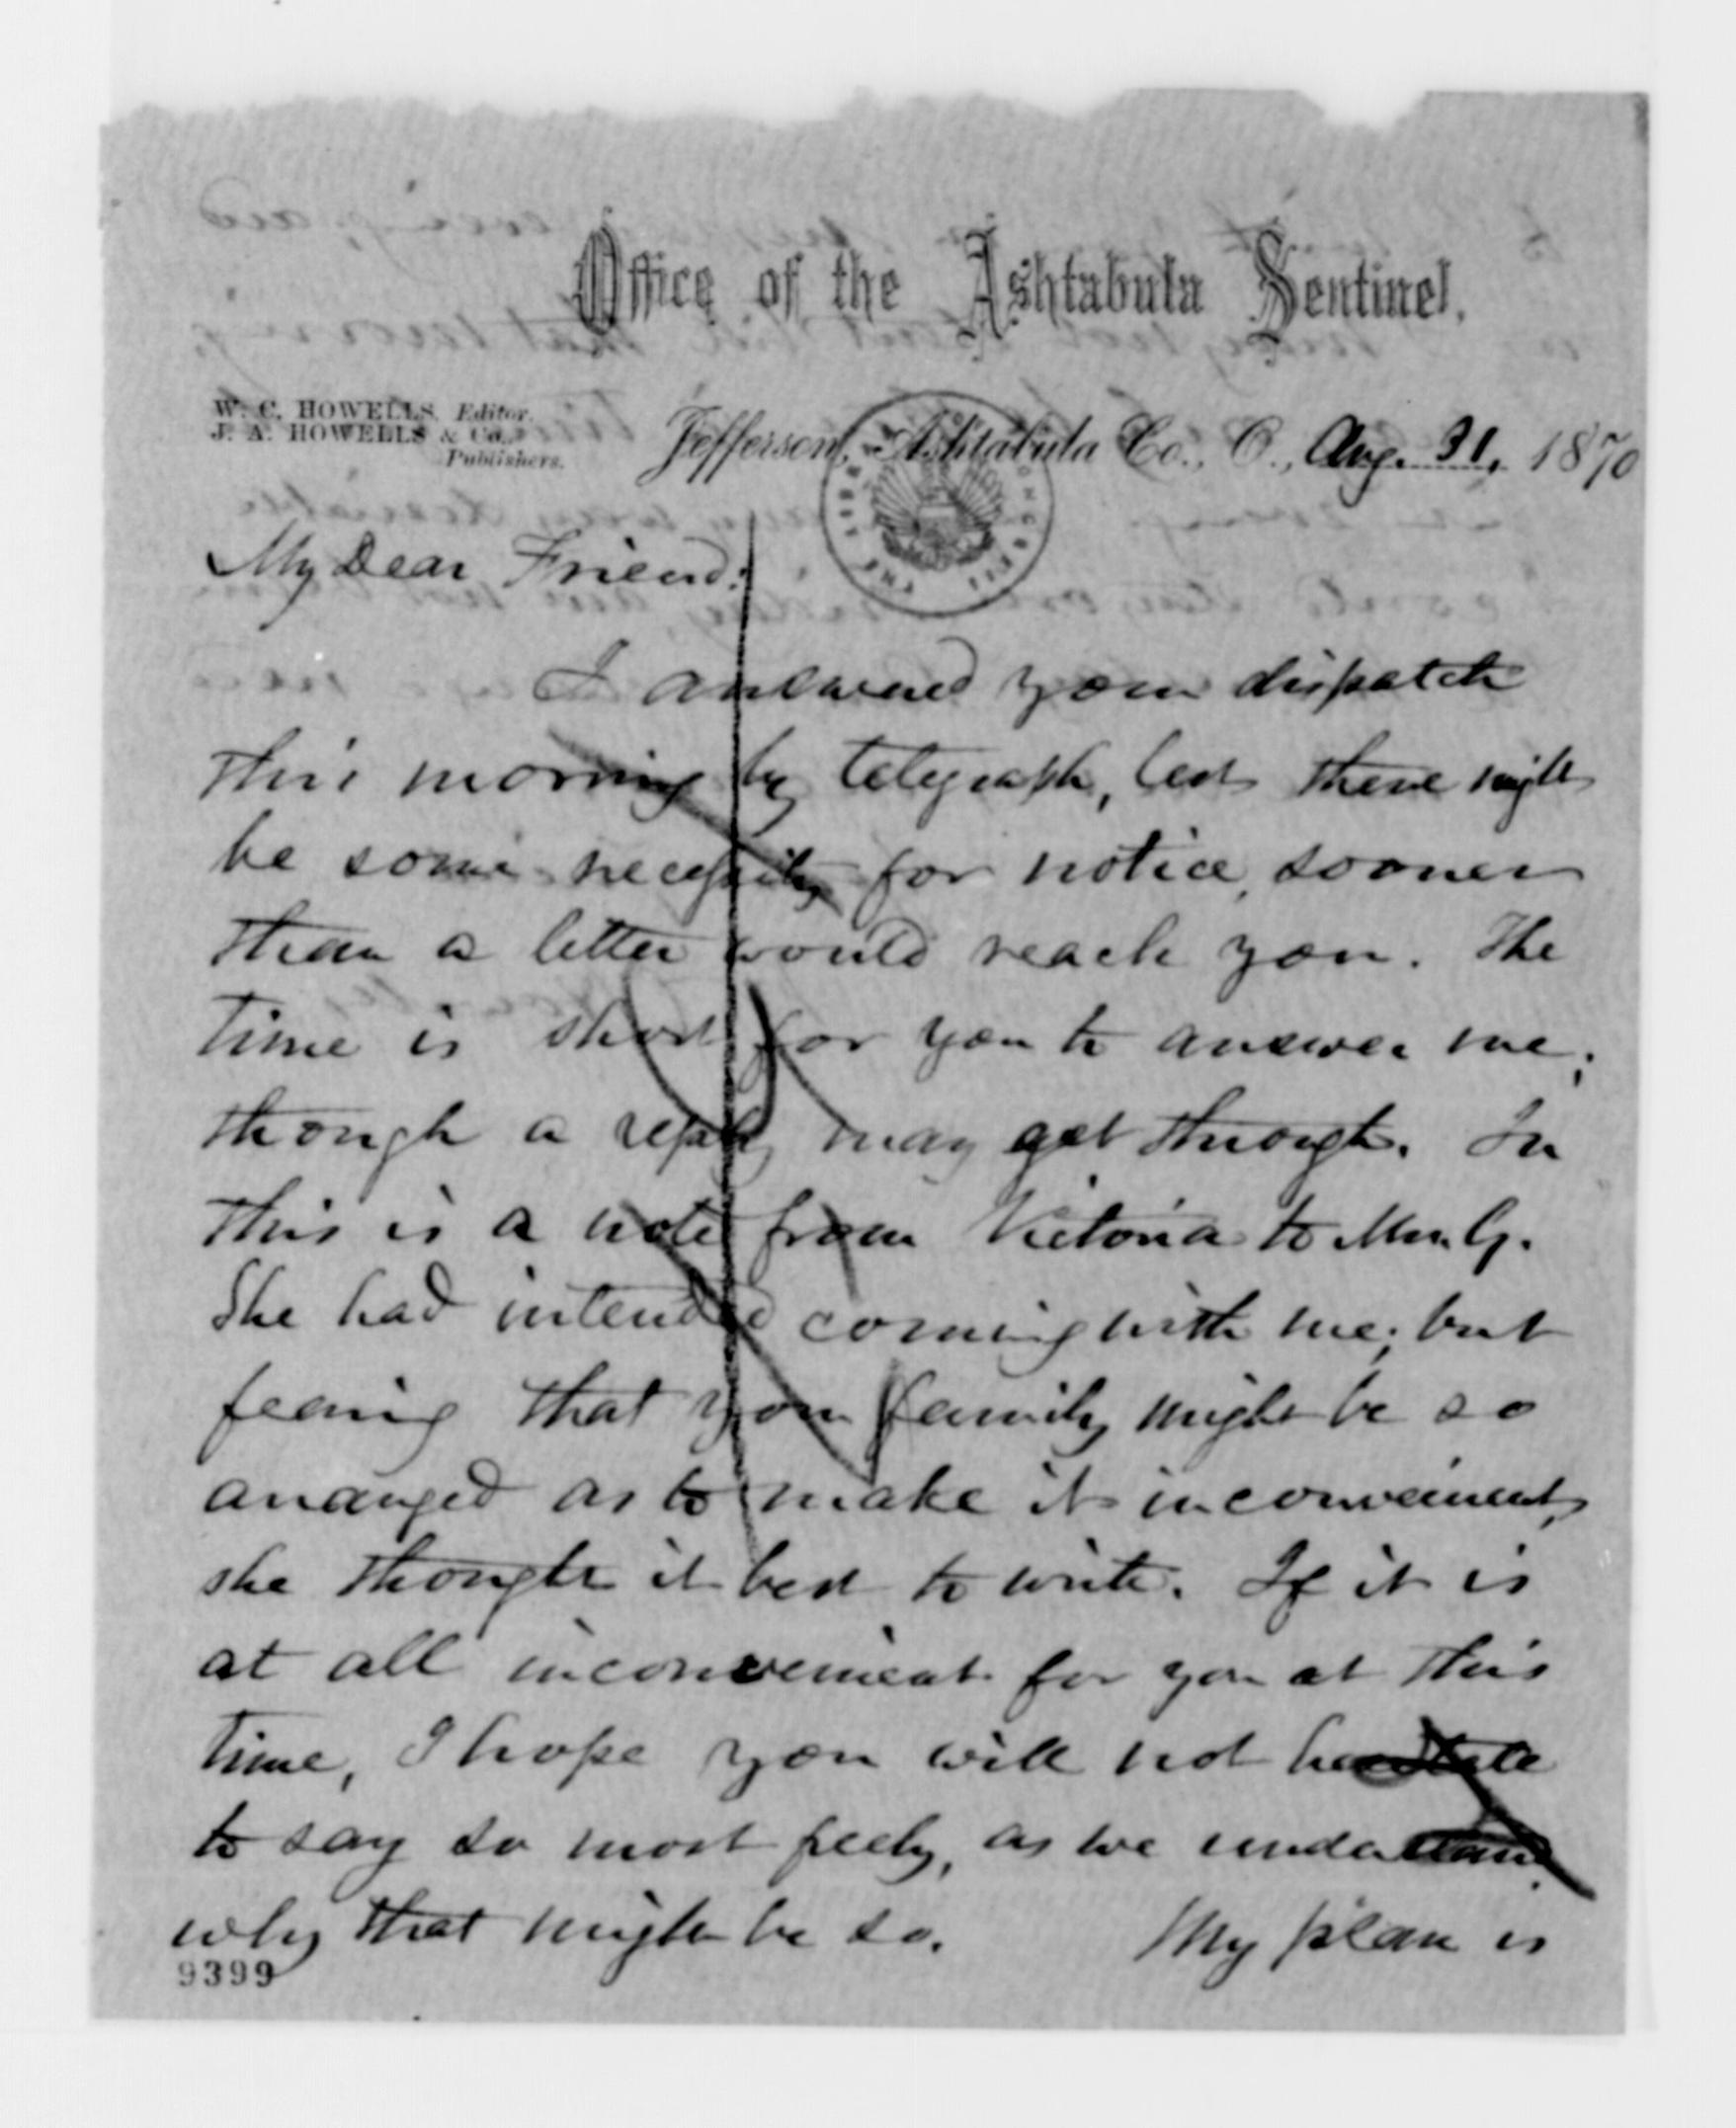 Office of the Ashtabula Sentinel.
W. C. HOWELLS, Editor.
J. A. HOWELLS & Co.,
Publishers.
Jefferson, Ashtabula Co., O., Aug. 31, 1870
My Dear Friend:
I answered your dispatch
this morning by telegraph, lest there might
be some necessity for notice, sooner
than a letter would reach you. The
time is short for you to answer me;
though a reply may get through. In
this is a note from Victoria to Mrs. G.
She had intended coming with me; but
fearing that your family might be so
arranged as to make it inconvenient,
she thought it best to write. If it is
at all inconvenient for you at this
time, I hope you will not hesitate
to say so most freely, as we understand
why that might be so. My plan is
9399